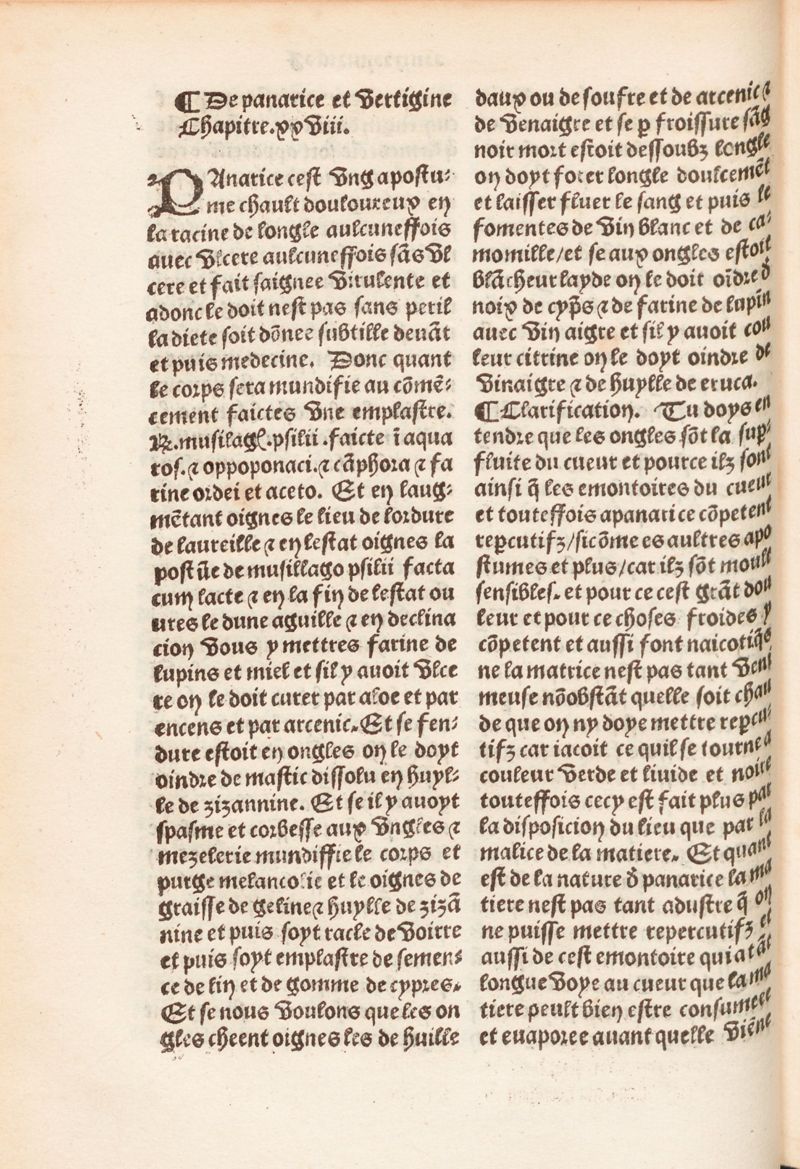 ¶ De panarice et vertigine
Chapitre.xxviii.
PAnarice cest vng apostu⸗
me chault douloureux en
la racine de longle aulcuneffois
auec vlcere aulcuneffois sãs vl
cere et fait saignee virulente et
adonc le doit nest pas sans peril
la diete soit dõnee subtille deuãt
et puis medecine. Donc quant
le corps sera mundifie au cõmẽ⸗
cement faictes vne emplastre.
R. musilag. psilii .faicte ĩ aqua
ros. ⁊ oppoponaci. ⁊ cãphora ⁊ fa
rine ordei et aceto. Et en laug⸗
mẽtant oignes le lieu de lordure
de laureille ⁊ en lestat oignes la
postũe de musillago psilii facta
cum lacte ⁊ en la fin de lestat ou
ures le dune aguille ⁊ en declina
cion vous y mettres farine de
lupins et miel et sil y auoit vlce
re on le doit curer par aloe et par
encens et par arcenic. Et se fen⸗
dure estoit en ongles on le doyt
oindre de mastic dissolu en huyl⸗
le de zizannine. Et se il y auoyt
spasme et corbesse aux vngles ⁊
mezelerie mundiffie le corps et
purge melancolie et le oignes de
graisse de geline ⁊ huylle de zizã
nine et puis soyt racle de voirre
et puis soyt emplastre de semen⸗
ce de lin et de gomme de cypres.
Et se nous voulons que les on
gles cheent oignes les de huille
daux ou de soufre et de arcenic ⁊
de venaigre et se p froissure sãg
noir mort estoit dessoubz longle
on doyt forer longle doulcemẽt
et laisser fluer le sang et puis le
fomentes de vin blanc et de ca⸗
momille/et se aux ongles estoit
blãcheur layde on le doit oĩdre d
noix de cyp̃s ⁊ de farine de lupĩn
auec vin aigre et sil y auoit cou
leur citrine on le doyt oindre de
vinaigre ⁊ de huylle de eruca.
¶ Clarification. Tu doys en
tendre que les ongles sõt la sup⸗
fluite du cueur et pource ilz sont
ainsi q̃ les emontoires du cueur
et touteffois a panarice cõpetent
repcutifz/sicõme es aultres apo
stumes et plus/car ilz sõt moult
sensibles. et pour ce cest grãt dou
leur et pour ce choses froides y
cõpetent et aussi font narcotiq̃s
ne la matrice nest pas tant veni
meuse nõobstãt quelle soit chau
de que on ny doye mettre repcu⸗
tifz car iacoit ce quil se tourne a
couleur verde et liuide et noire
touteffois cecy est fait plus par
la disposicion du lieu que par la
malice de la matiere. Et quant
est de la nature d panarice la ma
tiere nest pas tant adustre q̃ on
ne puisse mettre repercutifz et
aussi de cest emontoire qui a tãt
longue voye au cueur que la ma
tiere peult bien estre consumee
et euaporee auant quelle viẽne